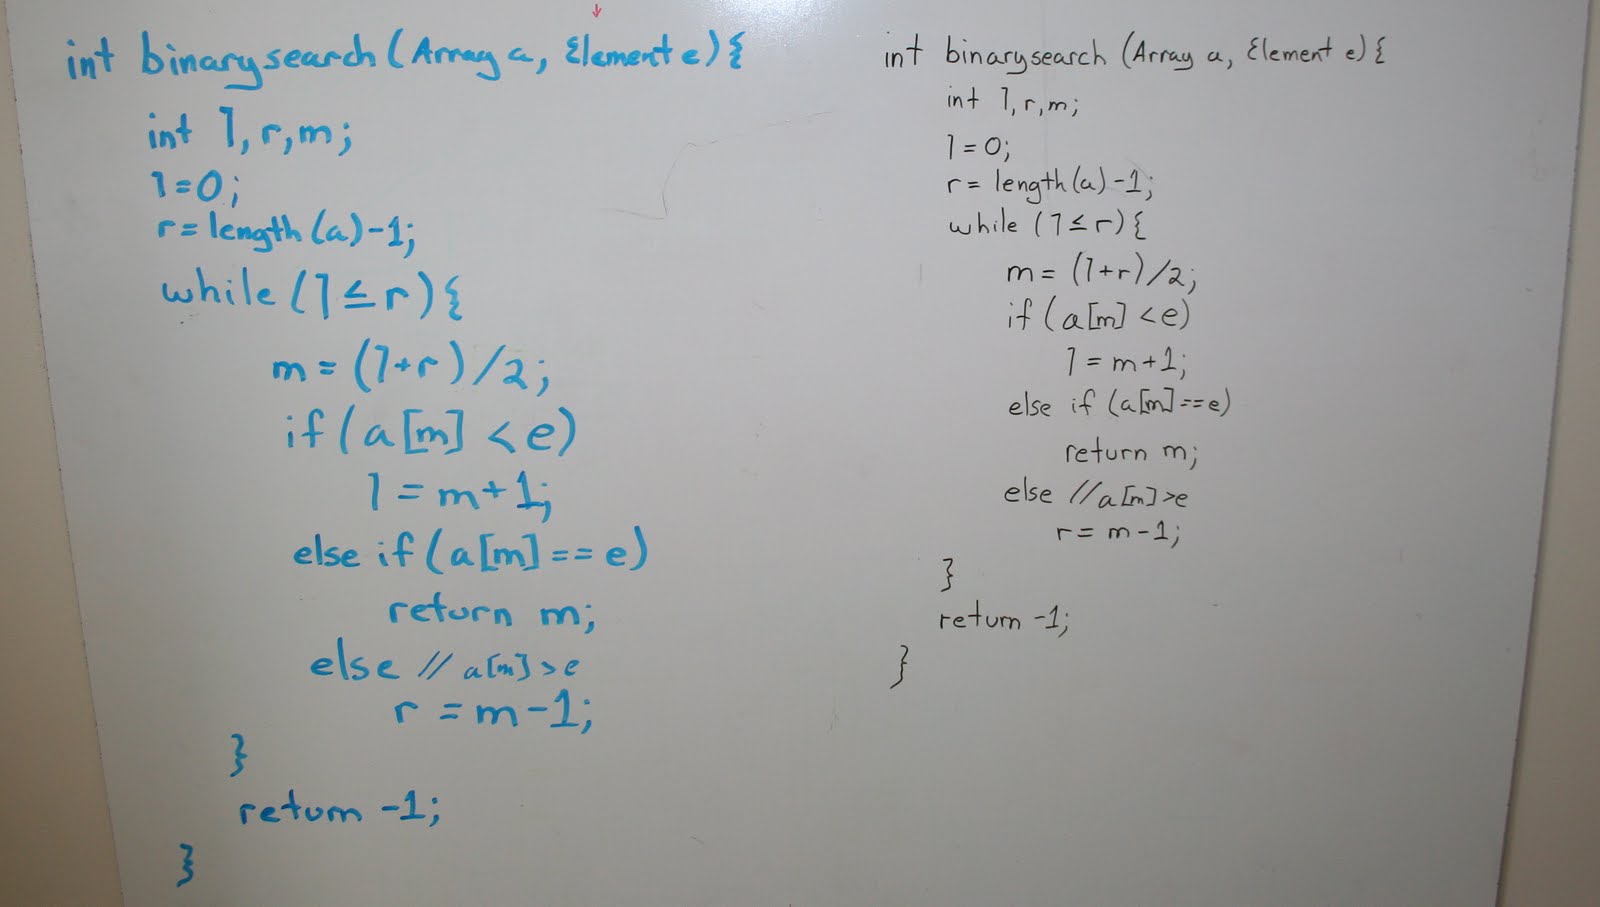 int binarysearch(Array a, Element e){
int l,r,m;
l=0;
r=length(a)-1;
while(l≤r){
m=(l+r)/2;
if(a[m]<e)
l=m+1;
else if(a[m]==e)
return m;
else // a[m]>e
r=m-1;
}
return -1;
}
int binarysearch (Array a, Element e){
int l,r,m;
l=0;
r= length(a)-1;
while (l≤r){
m= (l+r)/2;
if (a[m]<e)
l=m+1;
else if (a[m]==e)
return m;
else //a[m]>e
r=m-1;
}
return -1;
}